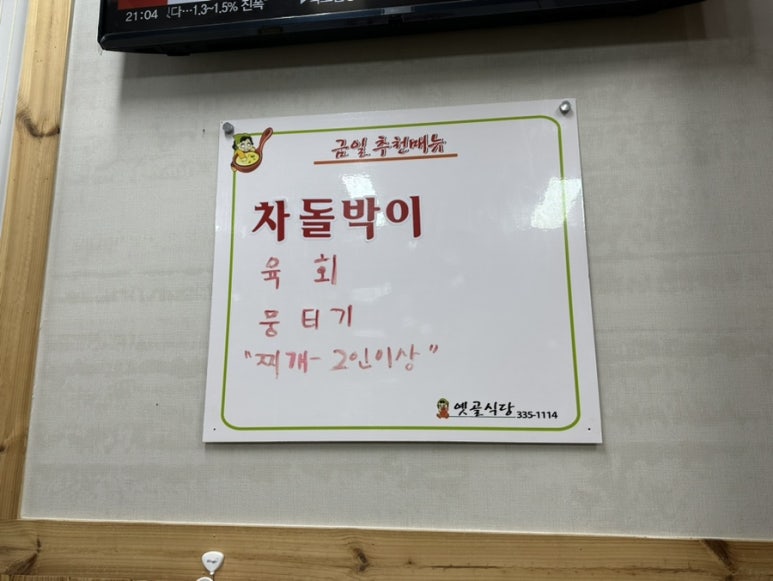 21:04 다…1.3~1.5% 진폭
금일 추천메뉴
차돌박이
육 회
뭉 티 기
"찌개- 2인이상"
옛골식당 335-1114